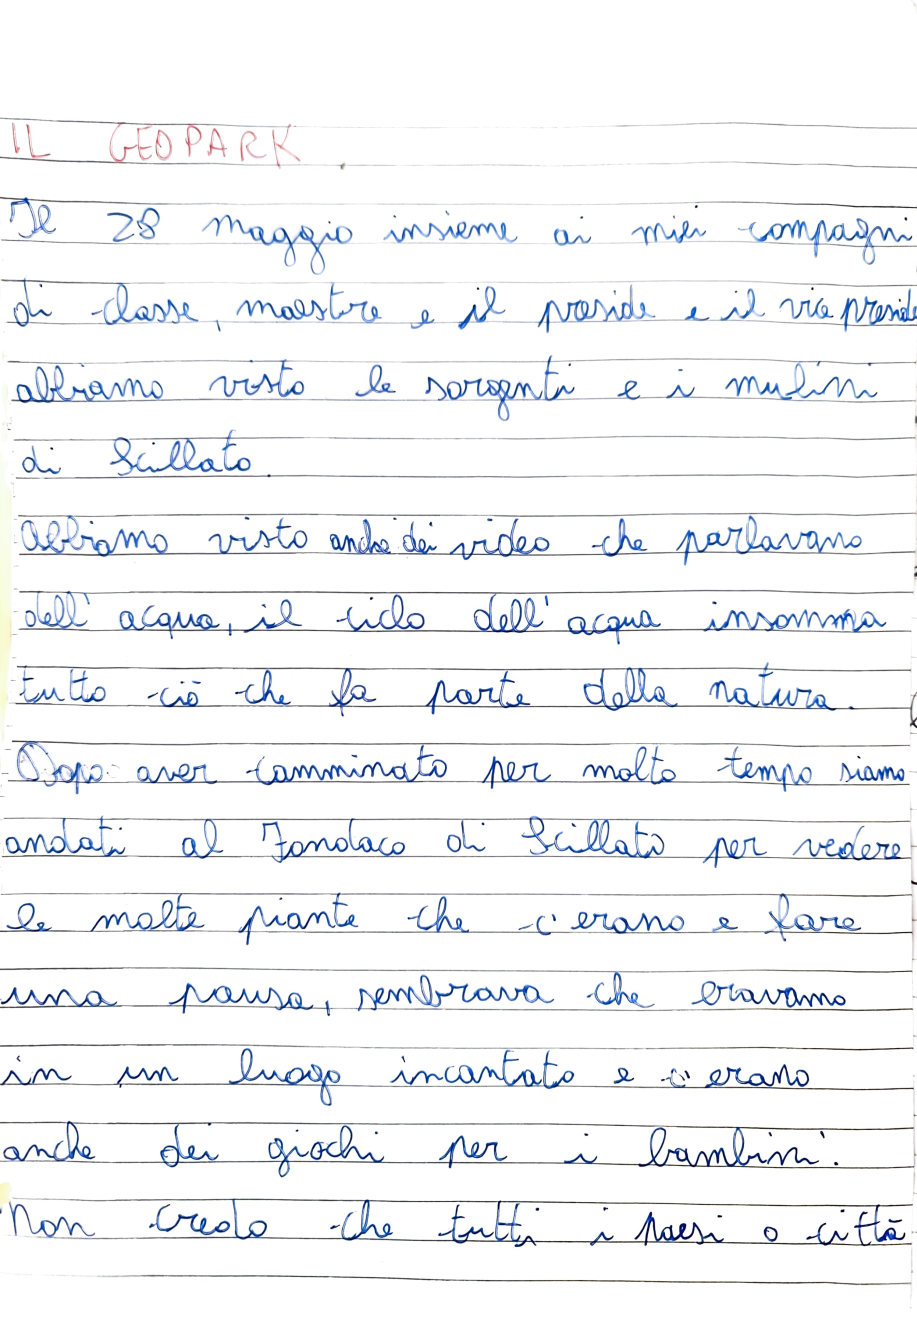 IL GEOPARK
Il 28 maggio insieme ai miei compagni
di classe, maestre e il preside e il vice preside
abbiamo visto le sorgenti e i mulini
di Scillato.
Abbiamo visto anche dei video che parlavano
dell'acqua, il ciclo dell'acqua insomma
tutto ciò che fa parte della natura.
Dopo aver camminato per molto tempo siamo
andati al Fondaco di Scillato per vedere
le molte piante che c'erano e fare
una pausa, sembrava che eravamo
in un luogo incantato e c'erano
anche dei giochi per i bambini.
Non credo che tutti i paesi o città